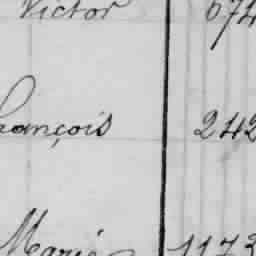 Victor 674
François 242
Marie 1173